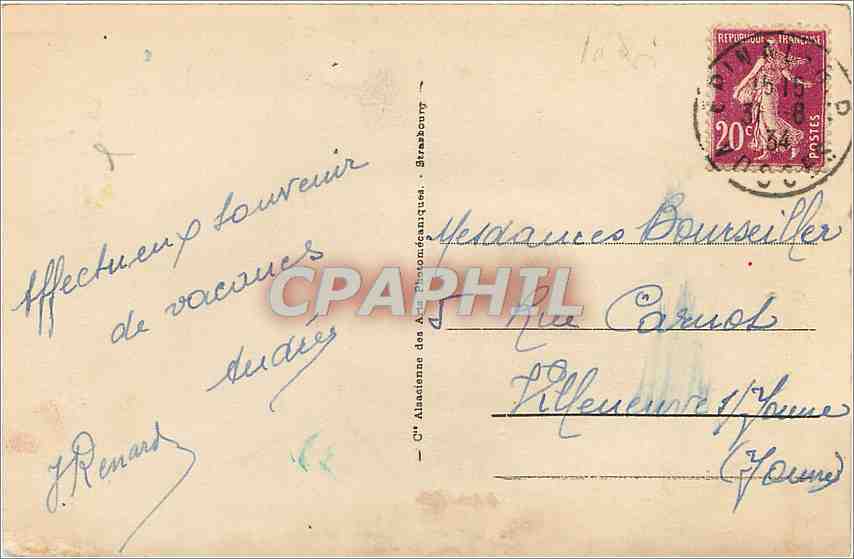 Affectueux souvenir
de vacances
Andrée
J. Renard
Cie Alsacienne des Arts Photomécaniques. - Strasbourg
CPAPHIL
REPUBLIQUE FRANÇAISE
20c
POSTES
EPINAL G.D
15 15
31 8
34
VOSGES
Mesdames Bourseiller
Rue Carnot
Villeneuve s/Yonne
(Yonne)